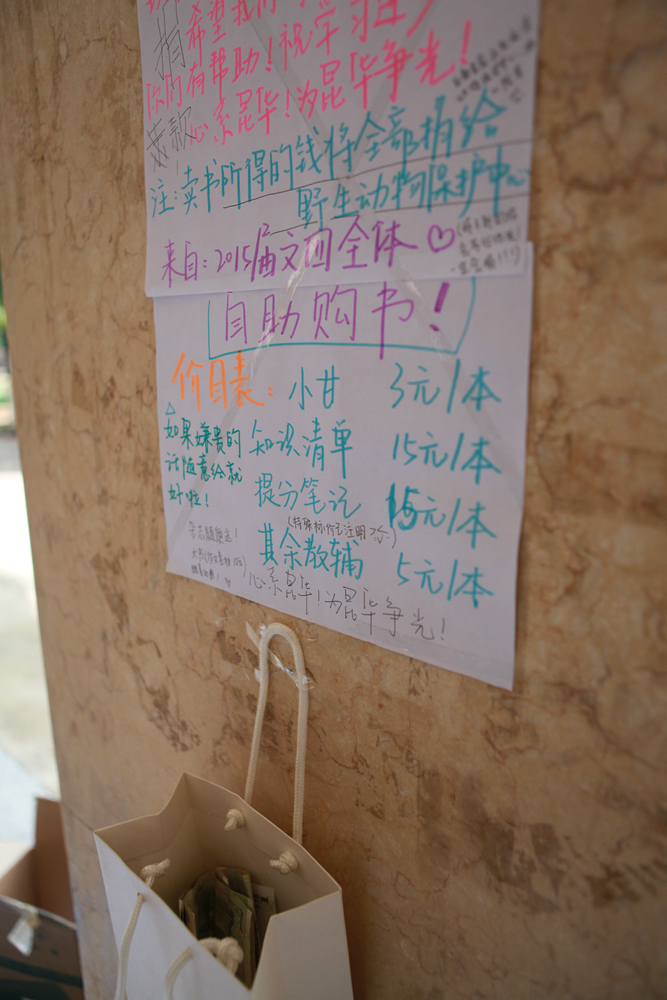 希望我们
捐款
你们有帮助！祝学习进步
心系昆华！为昆华争光！
注：卖书所得的钱将全部捐给
野生动物保护中心
来自：2015届文四全体♡
自助购书！
价目表：
小甘 3元/本
知识清单 15元/本
提分笔记 15元/本
(特殊标价已注明)
其余教辅 5元/本
如果嫌贵的
话随意给就
好啦！
心系昆华！为昆华争光！